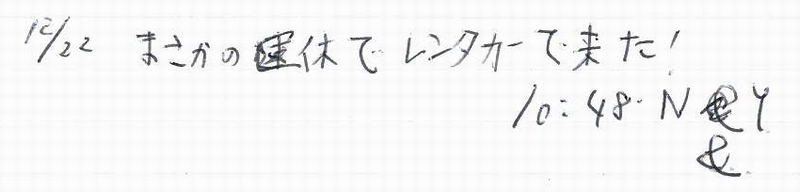 12/22 まさかの運休でレンタカーで来た!
10:48. N Y
&